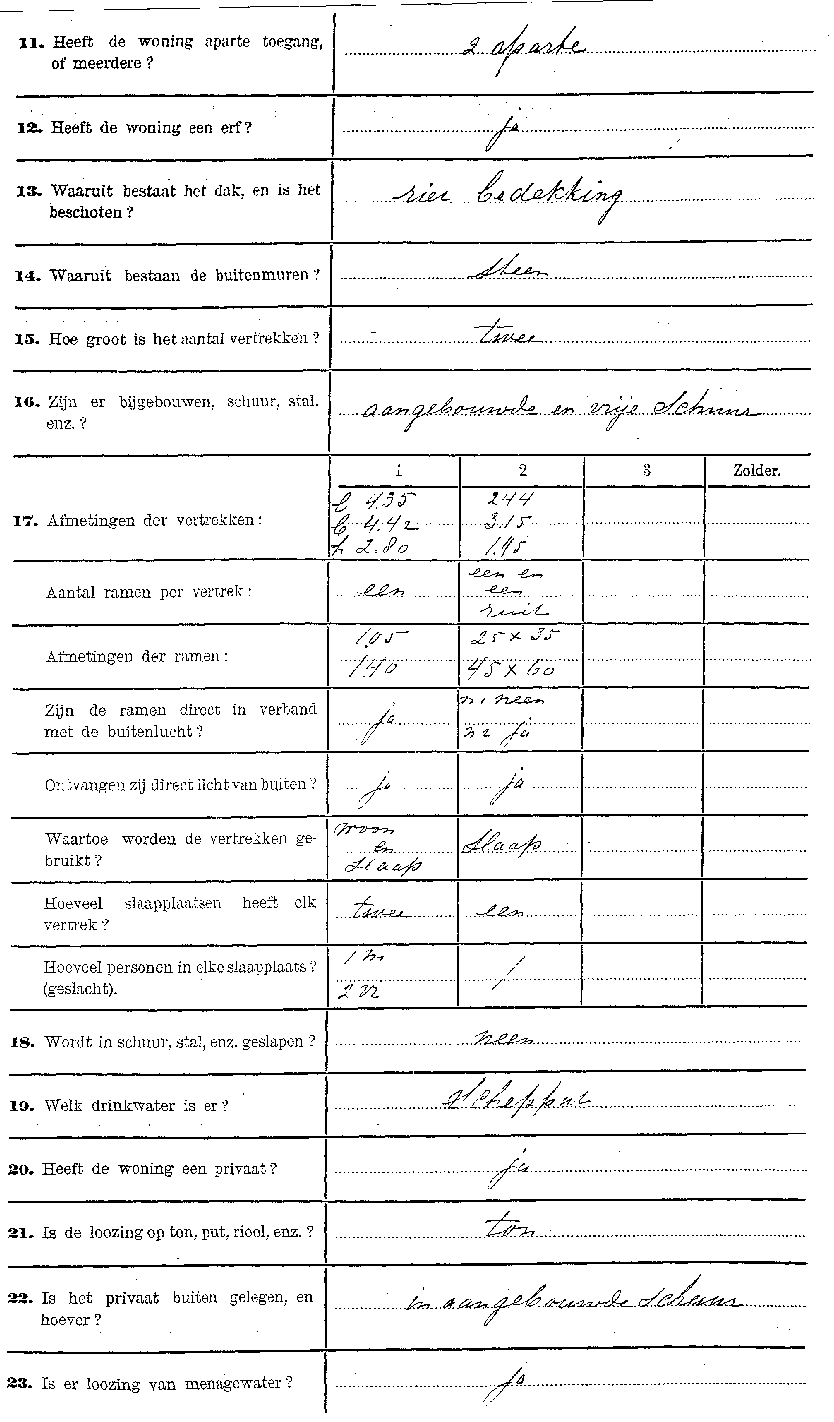 11. Heeft de woning aparte toegang, of meerdere? 2 aparte
12. Heeft de woning een erf? ja
13. Waaruit bestaat het dak, en is het beschoten? riet bedekking
14. Waaruit bestaan de buitenmuren? steen
15. Hoe groot is het aantal vertrekken? twee
16. Zijn er bijgebouwen, schuur, stal, enz.? aangebouwde en vrije schuur
1 2 3 Zolder.
17. Afmetingen der vertrekken:
l 4.35 244
b 4.42 3.15
h 2.80 1.95
Aantal ramen per vertrek: een een en een ruit
Afmetingen der ramen:
1,05 25 x 35
1,40 45 x 60
Zijn de ramen direct in verband met de buitenlucht? ja n1 neen n2 ja
Ontvangen zij direct licht van buiten? ja ja
Waartoe worden de vertrekken gebruikt? woon en slaap slaap
Hoeveel slaapplaatsen heeft elk vertrek? twee een
Hoeveel personen in elke slaapplaats? (geslacht). 1 m 2 vr /
18. Wordt in schuur, stal, enz. geslapen? neen
19. Welk drinkwater is er? schepput
20. Heeft de woning een privaat? ja
21. Is de loozing op ton, put, riool, enz.? ton
22. Is het privaat buiten gelegen, en hoever? in aangebouwde schuur
23. Is er loozing van menagewater? ja